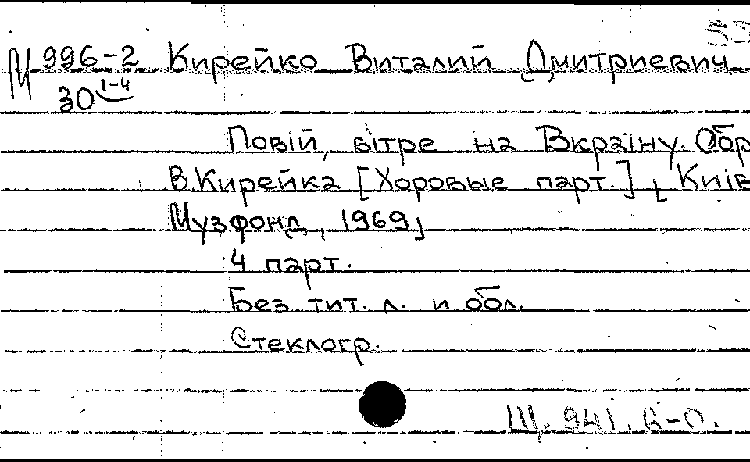 М 996-2 Кирейко Виталий Дмитриевич
30 1-4
Повій, вітре на Вкраїну. Обр
В. Кирейка [Хоровые парт.] [Київ
Музфонд, 1969]
4 парт.
Без тит. л. и обл.
Стеклогр.